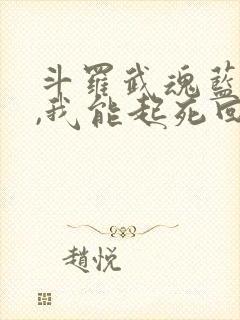 斗羅武魂藍
,我能起死回
趙悅